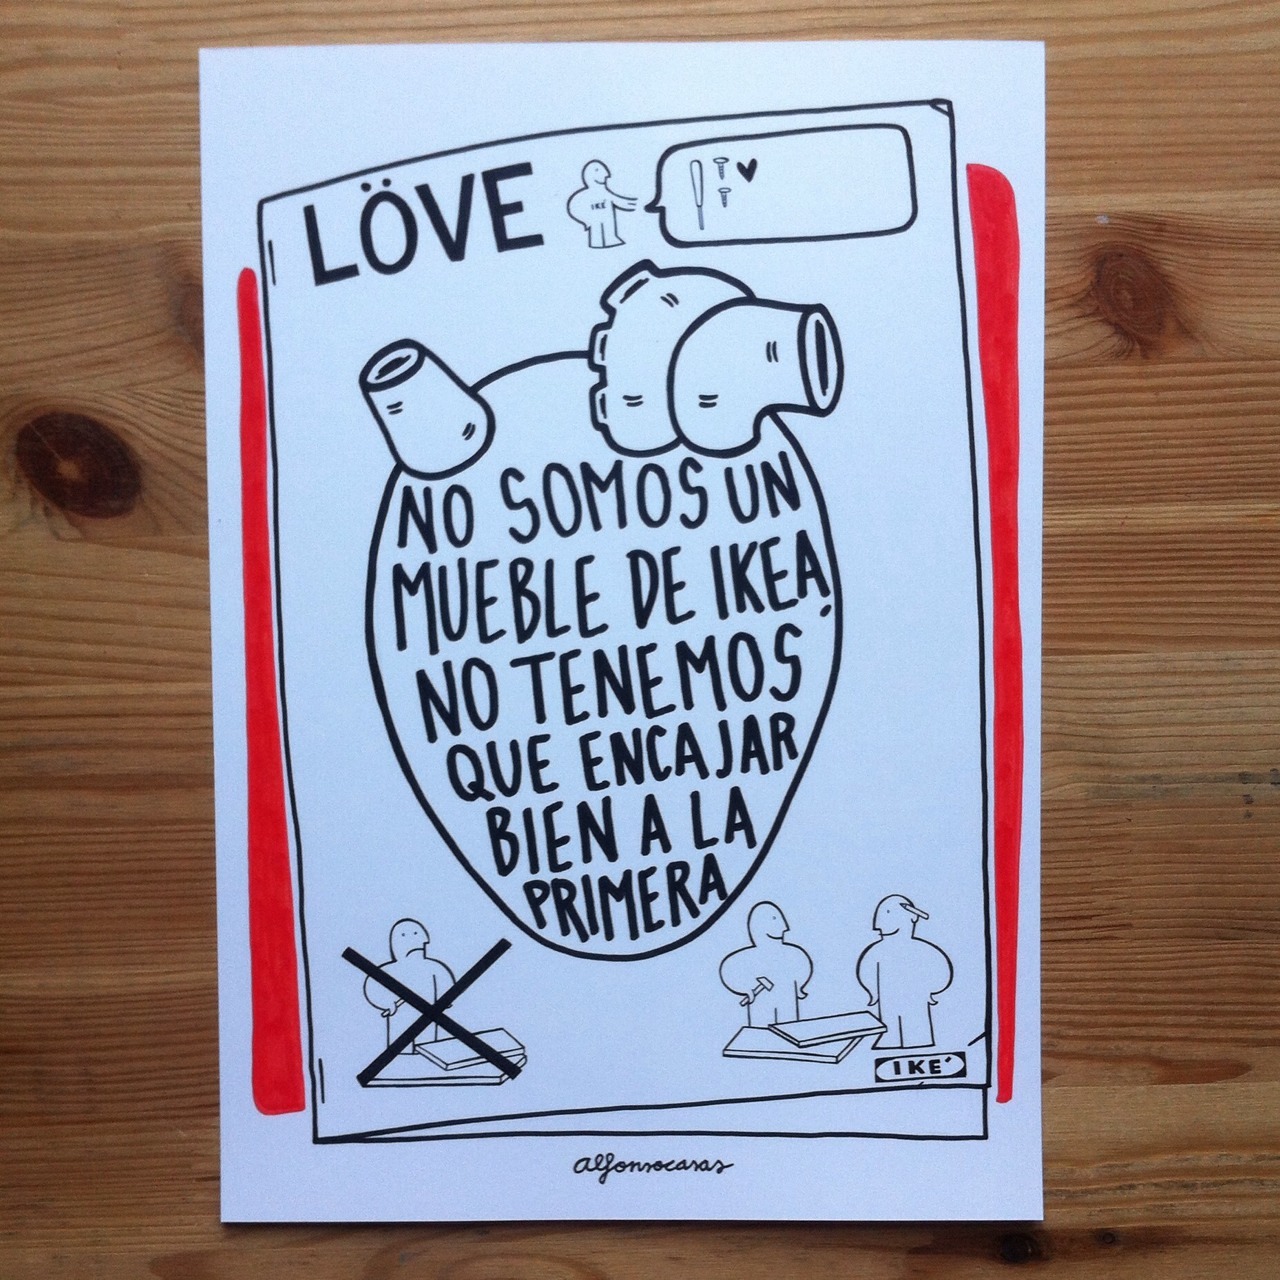 LÖVE
IKÉ
NO SOMOS UN
MUEBLE DE IKEA,
NO TENEMOS
QUE ENCAJAR
BIEN A LA
PRIMERA
IKE´
alfonsocasas